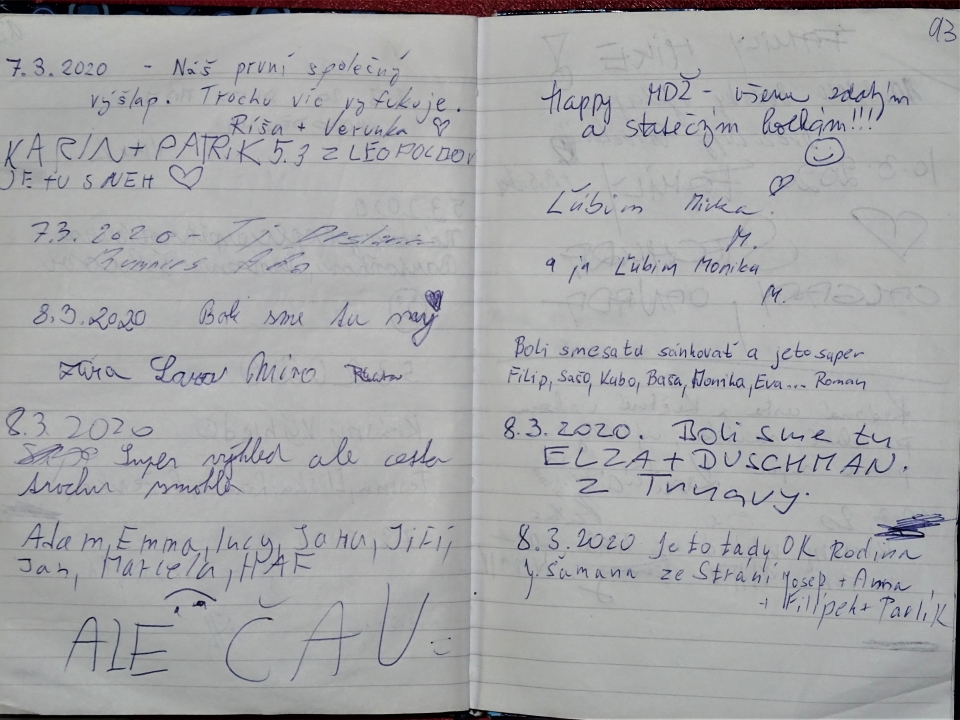 7.3.2020 - Náš první společný
výšlap. Trochu víc vyfukuje.
Ríša + Verunka ♡
KARIN + PATRIK 5.3 Z LEOPOLDOV
JE TU SNEH ♡
7.3. 2020 -
8.3.2020 Boli sme tu my
Miro
8.3.2020
Super výhled ale cesta
trochu smohla
Adam, Emma, Lucy, Jana, Jiří,
Jan, Marcela, HAF
ALE ČAU :)
93
Happy MDŽ - všem zdatným
a statečným holkám!!!
Ľúbim Mirka ♡
M.
a ja Ľúbim Monika
M.
Boli smesatu sánkovať a jeto super
Filip, Sašo, Kubo, Baša, Monika, Eva... Roman
8.3.2020. Boli sme tu
ELZA + DUSCHMAN.
Z Trnavy.
8.3.2020 Je to tady OK Rodina
J. Šumana ze Strání Josep + Anna
+ Fillípek + Pavlík